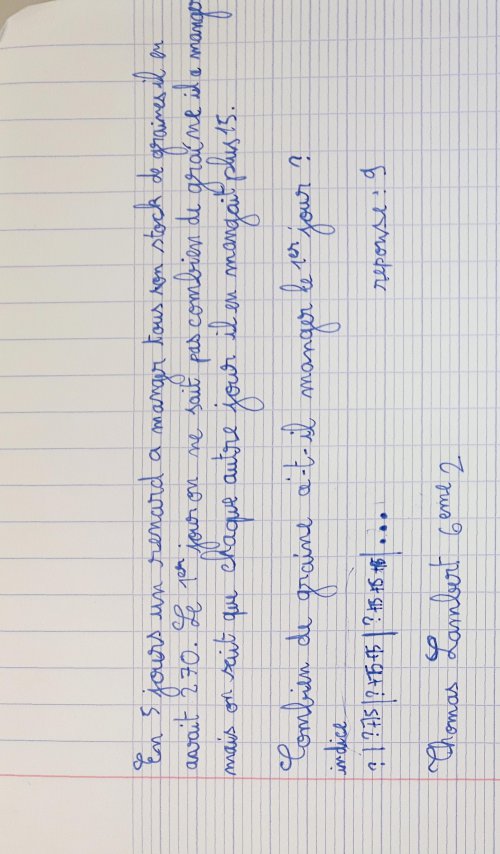 En 5 jours un renard a manger tous son stock de graines il en
avait 270. Le 1er jour on ne sait pas combien de graine il a manger
mais on sait que chaque autre jour il en mangait plus 15.
Combien de graine a-t-il manger le 1er jour ?
indice
? | ?+15 | ?+15+15 | ?+15+15+15 | ... reponse : 9
Thomas Lambert 6eme 2